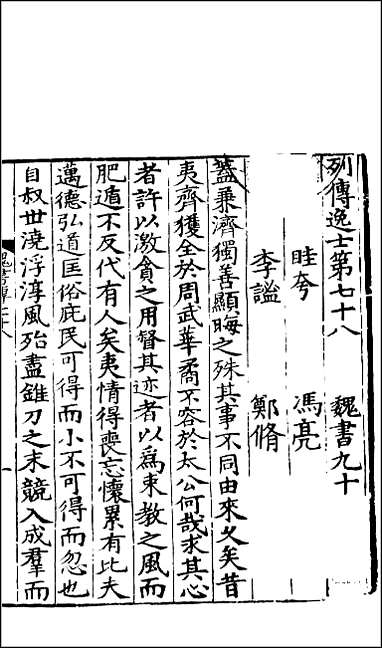 列傳逸士第七十八　魏書九十
眭夸　馮亮
李謐　鄭脩
蓋兼濟獨善顯晦之殊其事不同由來久矣昔
夷齊獲全於周武華矞不容於太公何哉求其心
者許以激貪之用督其迹者以爲束教之風而
肥遁不反代有人矣夷情得喪忘懷累有比夫
邁德弘道匡俗庇民可得而小不可得而忽也
自叔世澆浮淳風殆盡錐刀之末競入成羣而
魏書傳七十八
一